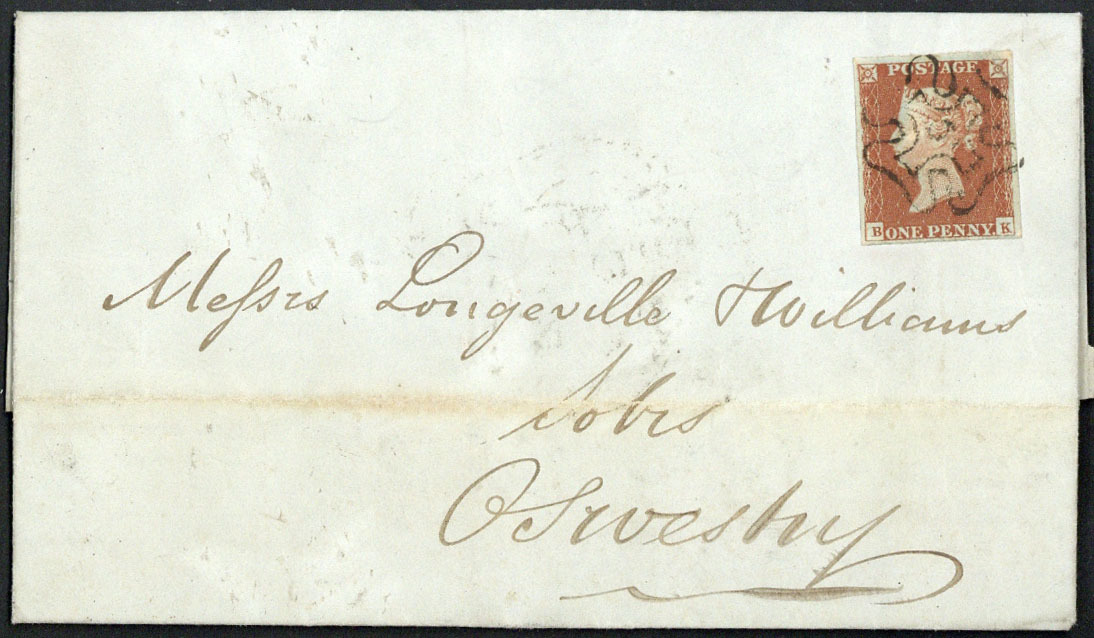 POSTAGE
B ONE PENNY K
Messrs Longeville & Williams
Solrs
Oswestry